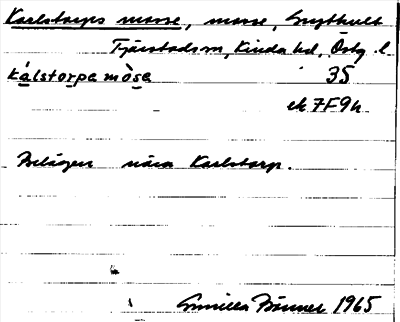 Karlstorps mosse, mosse, Smythult
Tjärstads sn, Kinda hd, Östg. l.
kálstorpa mòsa 35
ek 7F9h
Belägen nära Karlstorp.
Gunilla Brånner 1965